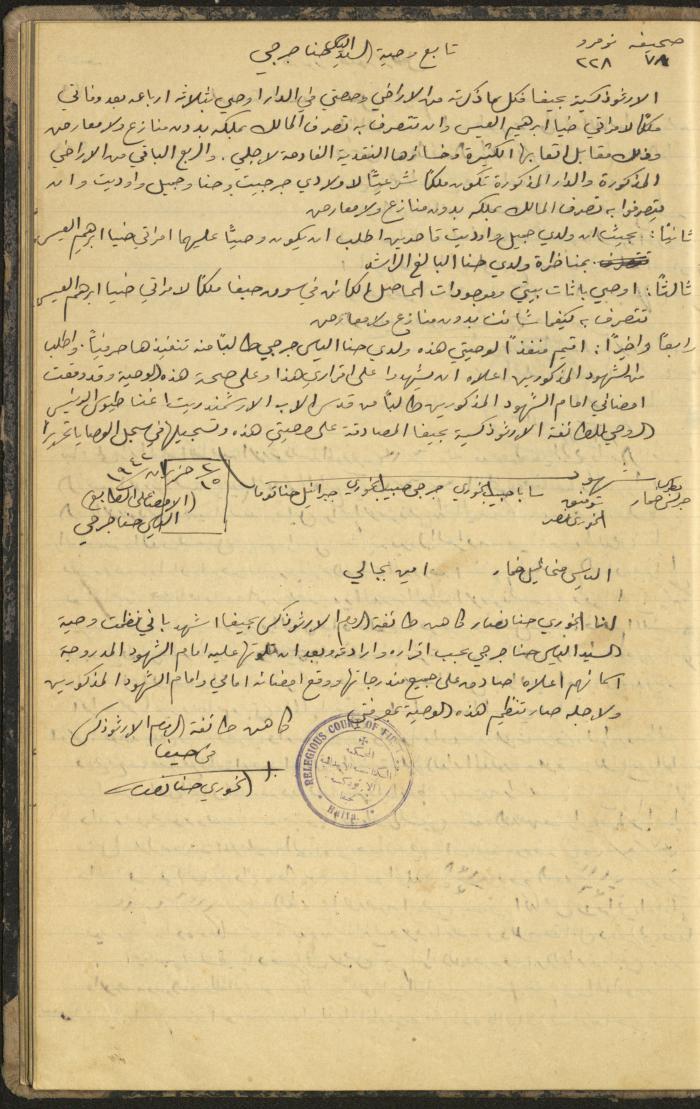 صحيفة نومرو
٧٨ ٢٢٨
تابع وصية السيد الياس حنا جرجي
الارثوذكسية بحيفا فكل ما ذكرته من الاراضي وحصتي في الدار اوصي بثلاثة ارباعه بعد وفاتي
ملكًا لامراتي ضيا ابرهيم العيس وان تتصرف به تصرف المالك بملكه بدون منازع ولا معارض
وذلك مقابل اتعابها الكثيرة وخسائرها النقدية الفادحة لاجلي. والربع الباقي من الاراضي
المذكورة والدار المذكورة تكون ملكًا شرعيًا لاولادي جرجيت وحنا وجميل واوديت وان
يتصرفوا به تصرف المالك بملكه بدون منازع ولا معارض
ثانيًا: بحيث ان ولدي جميل واوديت قاصرين اطلب ان يكون وصيًا عليهما امراتي ضيا ابرهيم العيس
بمناظرة ولدي حنا البالغ الراشد
ثالثًا: اوصي باثاث بيتي وموجودات المحل الكائن في سوق حيفا ملكًا لامراتي ضيا ابرهيم العيس
تتصرف به كيفما شائت بدون منازع ولا معارض
رابعًا واخيرًا: اقيم منفذًا لوصيتي هذه ولدي حنا الياس جرجي طالبًا منه تنفيذها حرفيًا. واطلب
من الشهود المذكورين اعلاه ان يشهدوا على اقراري هذا وعلى صحة هذه الوصية وقد وقعت
امضائي امام الشهود المذكورين طالبًا من قدس الاب الارشمندريت اغناطيوس الرئيس
الروحي للطائفة الارثوذكسية بحيفا المصادقة على وصيتي هذه وتسجيلها في سجل الوصايا تحريرا
في ١٥ حزيران سنة ١٩٤٢
شهود
جرجس خمار توفيق الخوري سابا حبيب الخوري جرجي حبيب الخوري جبرائيل حنا توما
(الامضاء على الطابع)
الياس حنا جرجي
الياس مخائيل خمار امين بجالي
انا الخوري حنا نصار كاهن طائفة الروم الارثوذكس بحيفا اشهد باني نظمت وصية
السيد الياس حنا جرجي بحسب اقراره وارادته وبعد ان تلوتها عليه امام الشهود المدروجة
اسمائهم اعلاه صادق على جميع مندرجاتها ووقع امضائه امامي وامام الشهود المذكورين
ولاجله صار تنظيم هذه الوصية بمعرفتي
كاهن طائفة الروم الارثوذكس
في حيفا
الخوري حنا نصار
RELEGIOUS COURT OF THE
Haifa